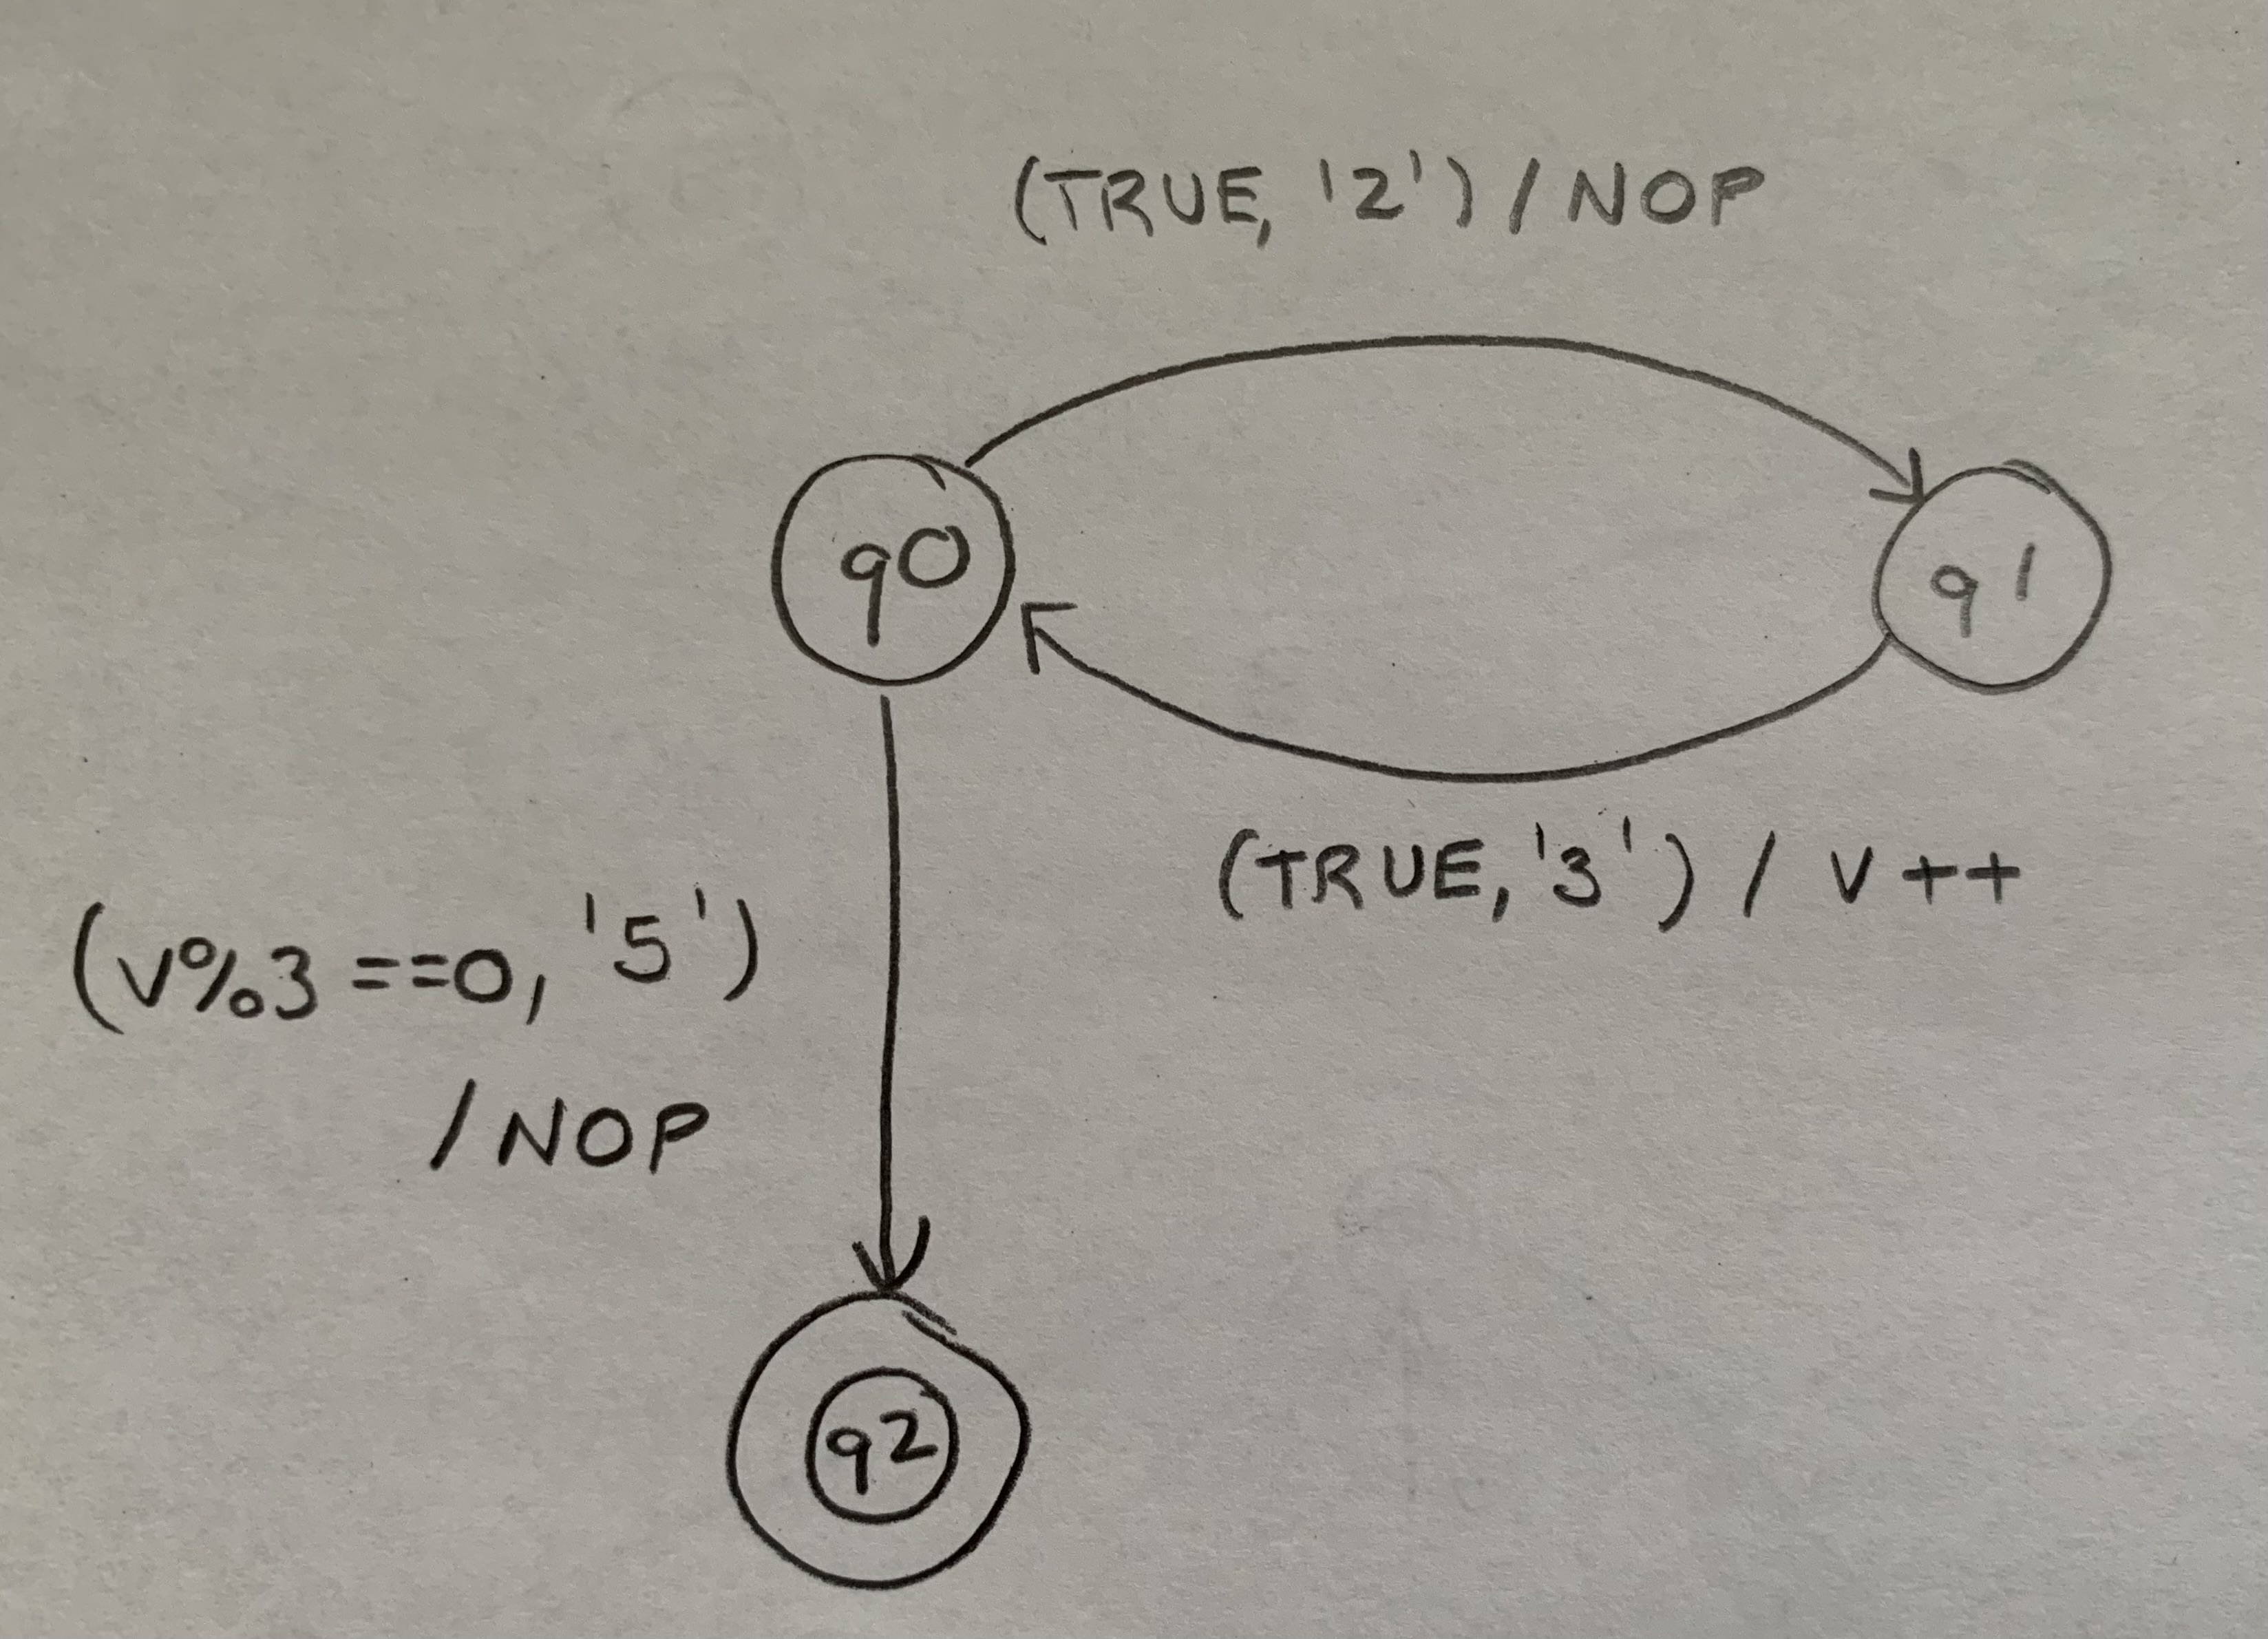 (TRUE, '2') / NOP
q0
q1
(TRUE, '3') / V++
(v%3==0, '5')
/ NOP
q2